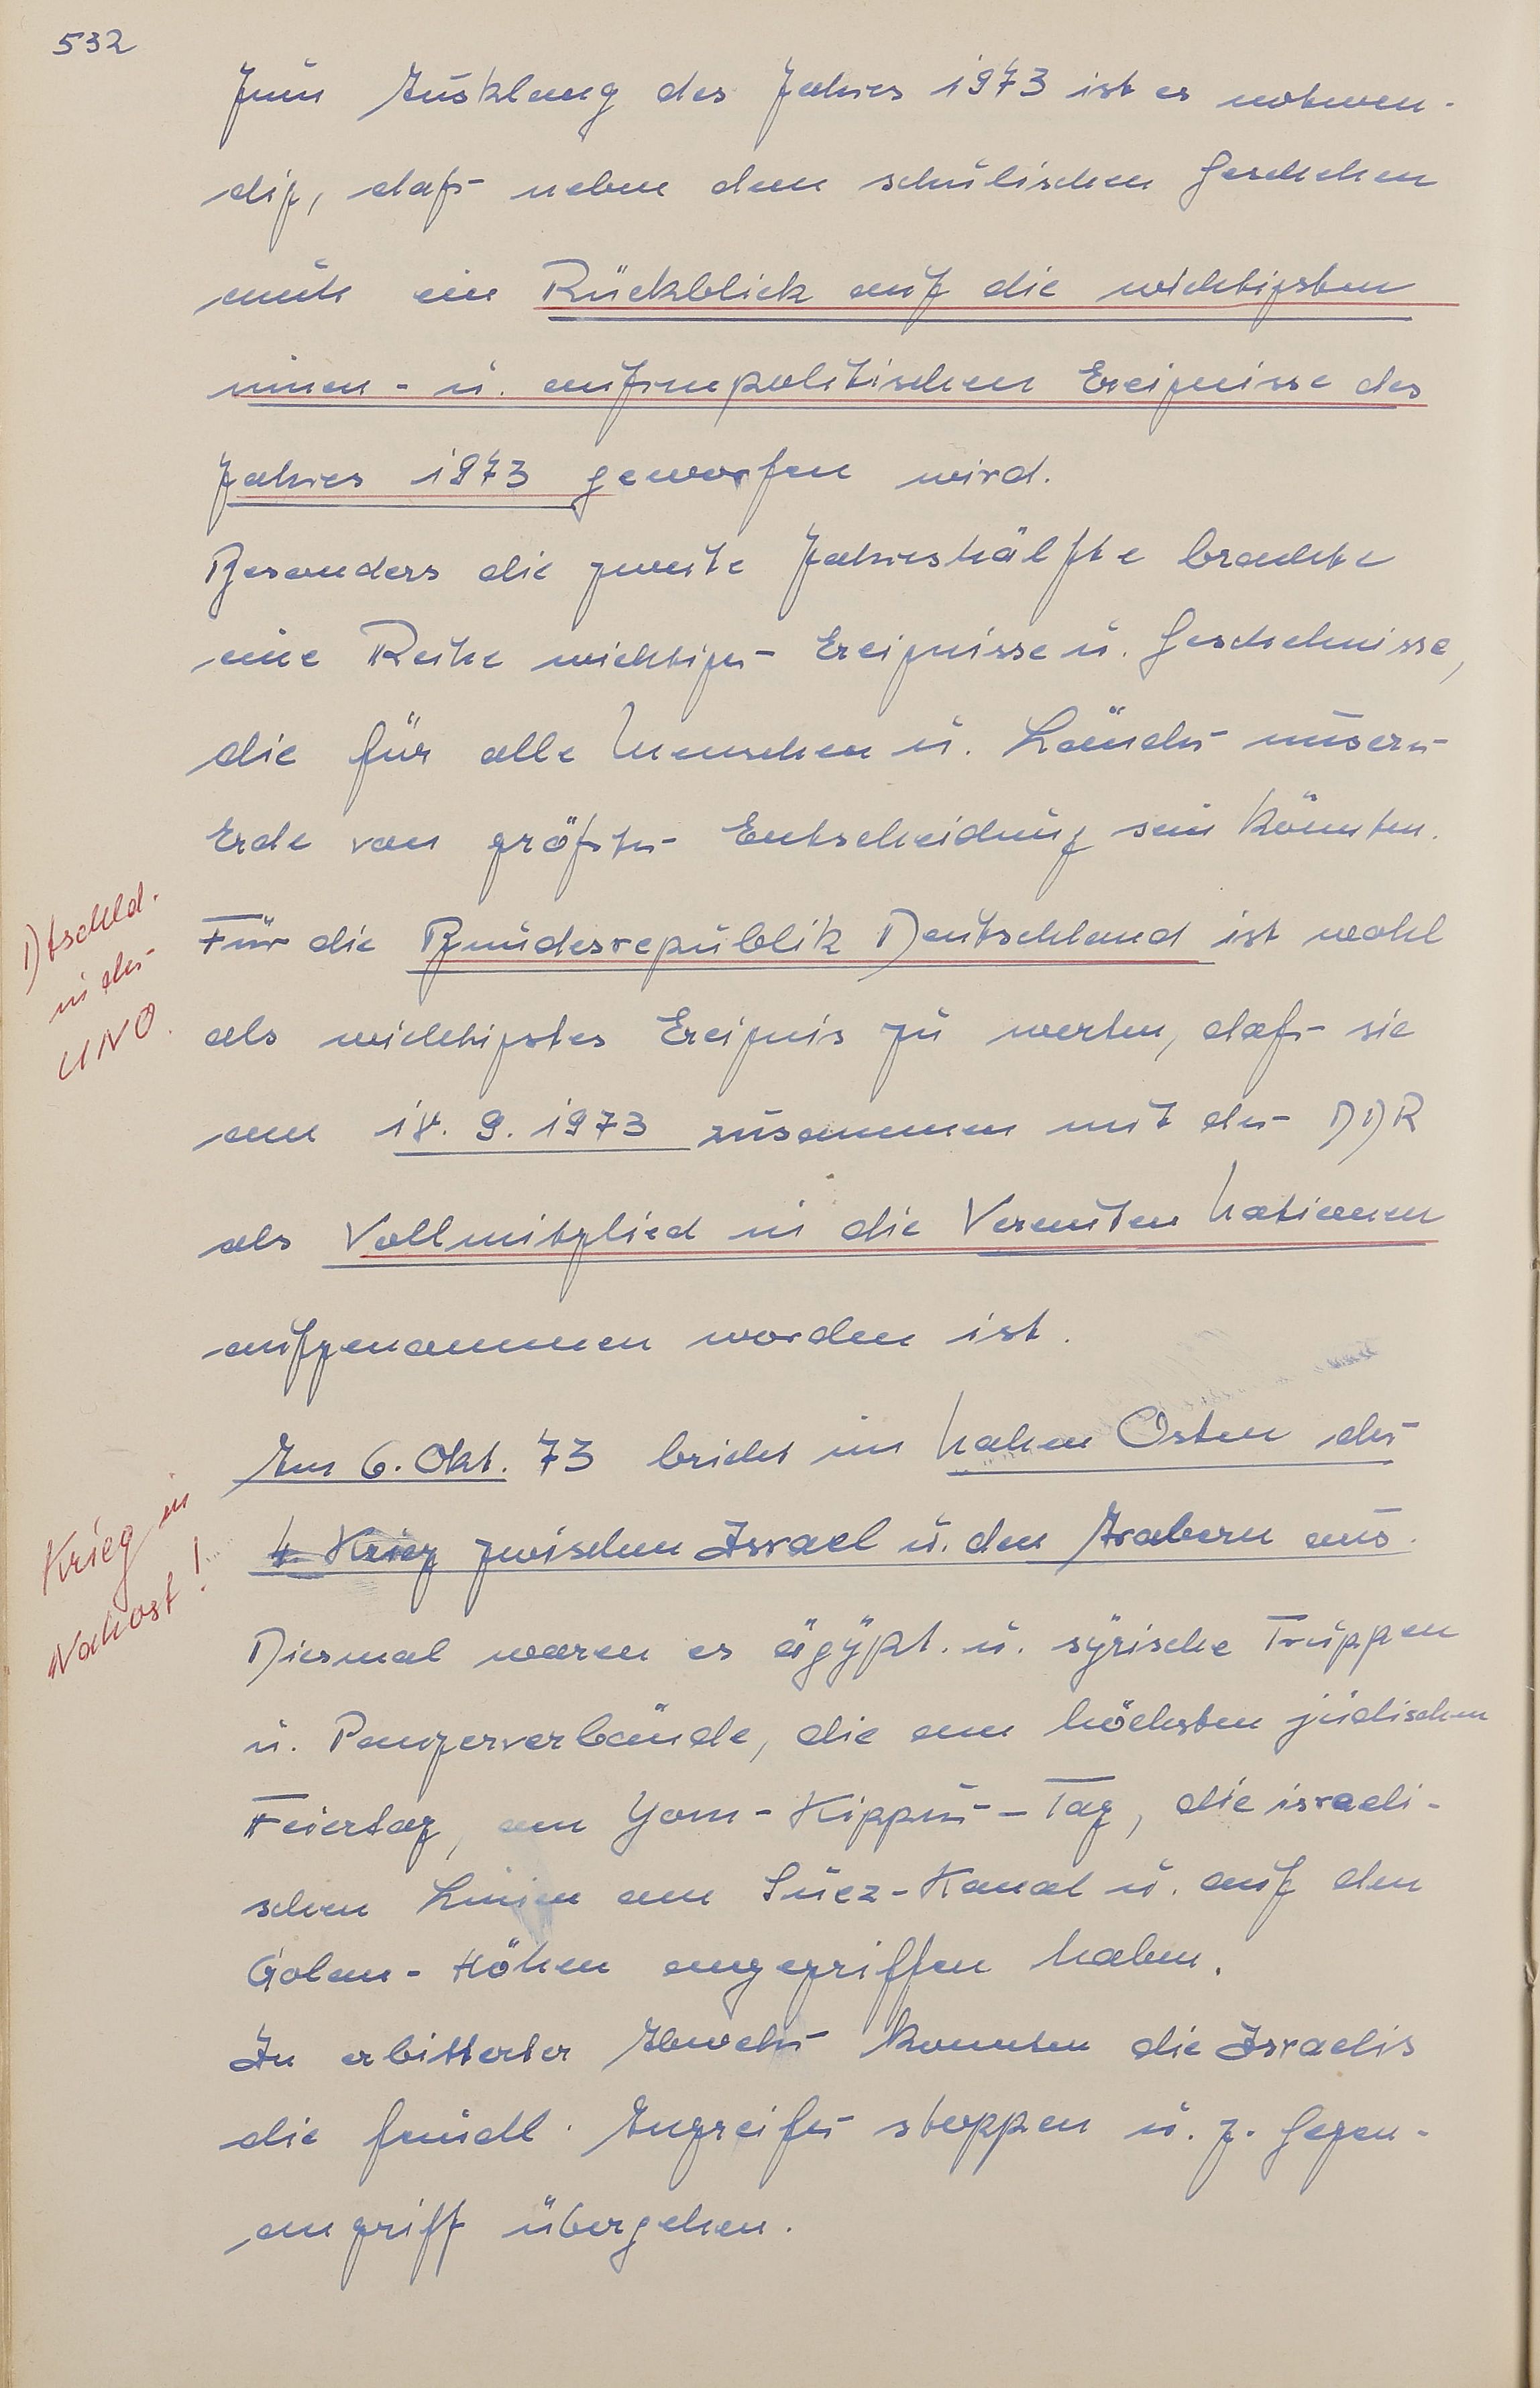 532
Zum Ausklang des Jahres 1973 ist es notwen-
dig, daß neben dem schulischen Geschehen
auch ein Rückblick auf die wichtigsten
innen- u. außenpolitischen Ereignisse des
Jahres 1973 geworfen wird.
Besonders die zweite Jahreshälfte brachte
eine Reihe wichtiger Ereignisse u. Geschehnisse,
die für alle Menschen u. Länder unserer
Erde von größter Entscheidung sein könnten.
Dtschld.
in der
UNO.
Für die Bundesrepublik Deutschland ist wohl
als wichtigstes Ereignis zu werten, daß sie
am 18. 9. 1973 zusammen mit der DDR
als Vollmitglied in die Vereinten Nationen
aufgenommen worden ist.
Krieg in
Nahost!
Am 6. Okt. 73 bricht im Nahen Osten der
4. Krieg zwischen Israel u. den Arabern aus.
Diesmal waren es ägypt. u. syrische Truppen
u. Panzerverbände, die am höchsten jüdischen
Feiertag, am Yom-Kippur-Tag, die israeli-
schen Linien am Suez-Kanal u. auf den
Golan-Höhen angegriffen haben.
In erbitterter Abwehr konnten die Israelis
die feindl. Angreifer stoppen u. z. Gegen-
angriff übergehen.